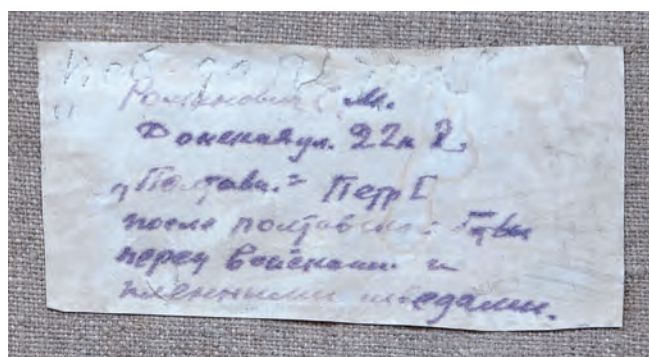 Романович С. М.
Донская ул. 22 к 2.
„Полтава." Петр I
после полтавск:
перед войсками и
пленными шведами.